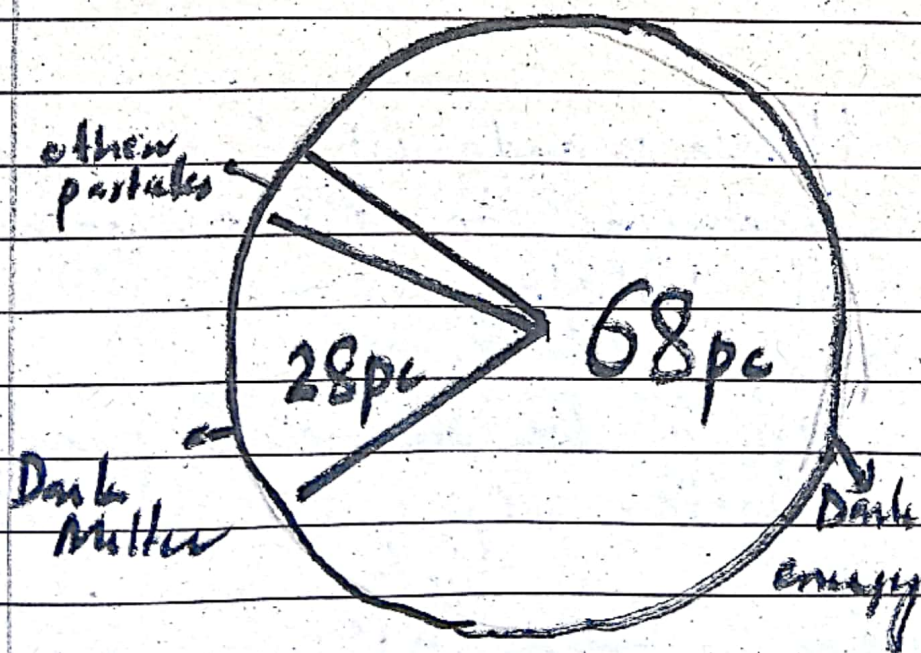 other
particles
68pc
28pc
Dark
Matter
Dark
energy